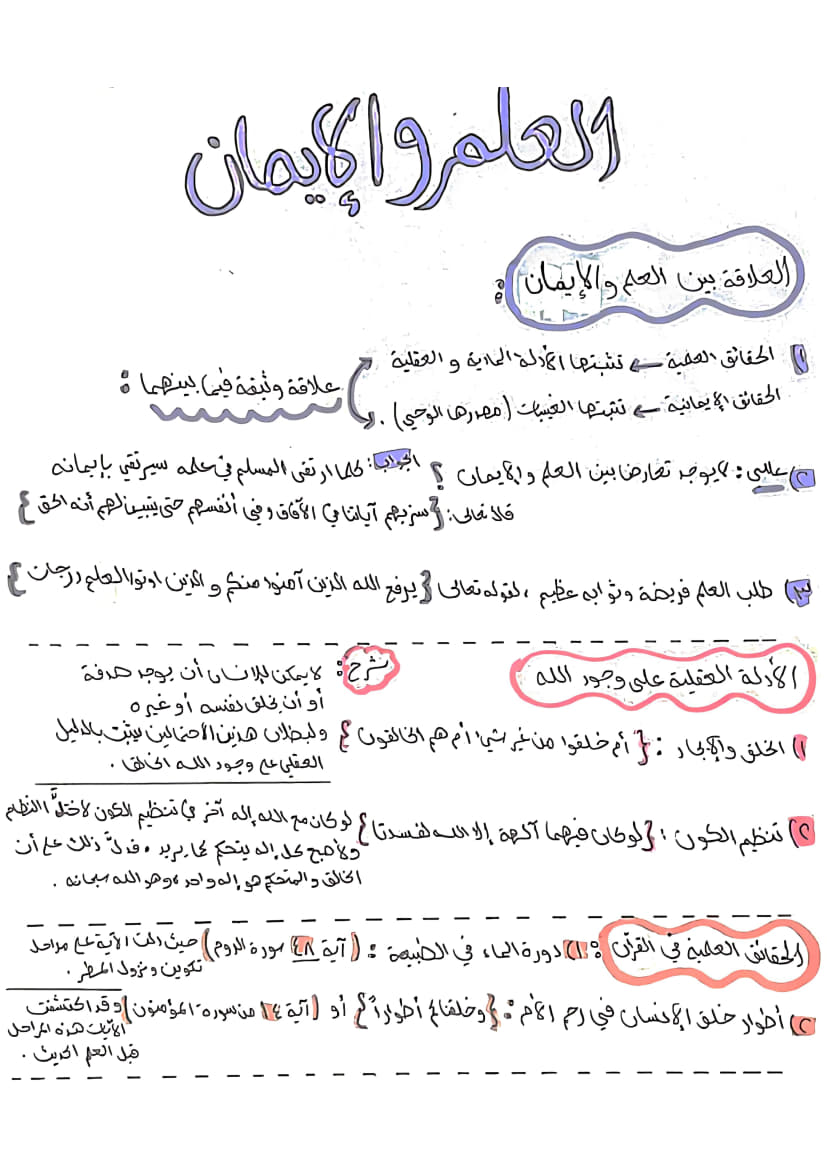 العلم والإيمان
العلاقة بين العلم والإيمان :
١) الحقائق العلمية ← تثبتها الأدلة المادية و العقلية
علاقة وثيقة فيما بينهما :
الحقائق الإيمانية ← تثبتها الغيبيات (مصدرها الوحي) .
٢) عللي : لا يوجد تعارض بين العلم والإيمان ؟ الجواب : كلما ارتقى المسلم في علمه سيرتقي بإيمانه
قال تعالى : {سنريهم آياتنا في الآفاق وفي أنفسهم حتى يتبين لهم أنه الحق}
٣) طلب العلم فريضة وثوابه عظيم ، لقوله تعالى {يرفع الله الذين آمنوا منكم والذين اوتوا العلم درجات}
الأدلة العقلية على وجود الله
١) الخلق والإيجاد : {أم خلقوا من غير شيء أم هم الخالقون}
شرح : لا يمكن للإنسان أن يوجد صدفة
أو أن يخلق نفسه أو غيره
ولبطلان هذين الأحتمالين يثبت بالدليل
العقلي على وجود الله الخالق .
٢) تنظيم الكون : {لو كان فيهما آلهة إلا الله لفسدتا}
لو كان مع الله إله آخر في تنظيم الكون لاختلَّ النظام
ولأصبح كل إله يتحكم كما يريد ، فدلَّ ذلك على أن
الخالق والمتحكم هو إله واحد ، وهو الله سبحانه .
الحقائق العلمية في القرآن : ١) دورة الماء في الطبيعة : (آية ٤٨ سورة الروم) حيث دلت الآية على مراحل
تكوين ونزول المطر .
٢) أطوار خلق الإنسان في رحم الأم : {وخلقناكم أطواراً} أو (آية ١٤ من سورة المؤمنون) وقد اكتشفت
الآيات هذه المراحل
قبل العلم الحديث .